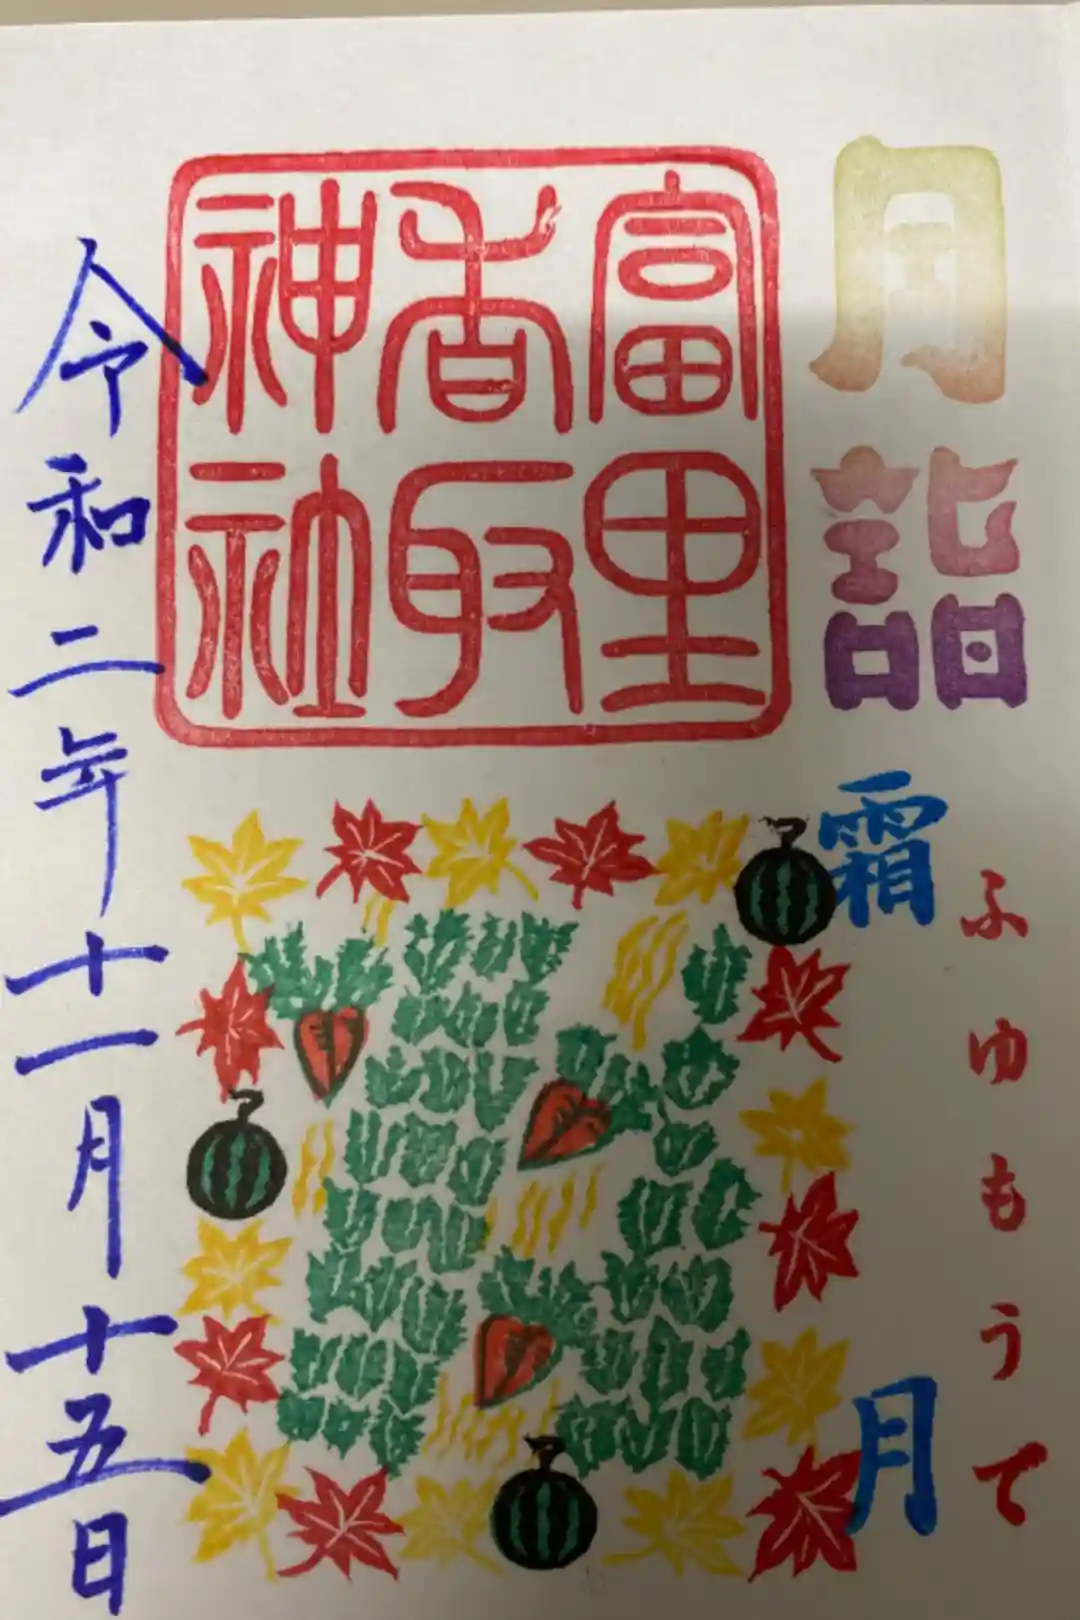 月詣
霜月
ふゆもうで
富里
香取
神社
令和二年十一月十五日